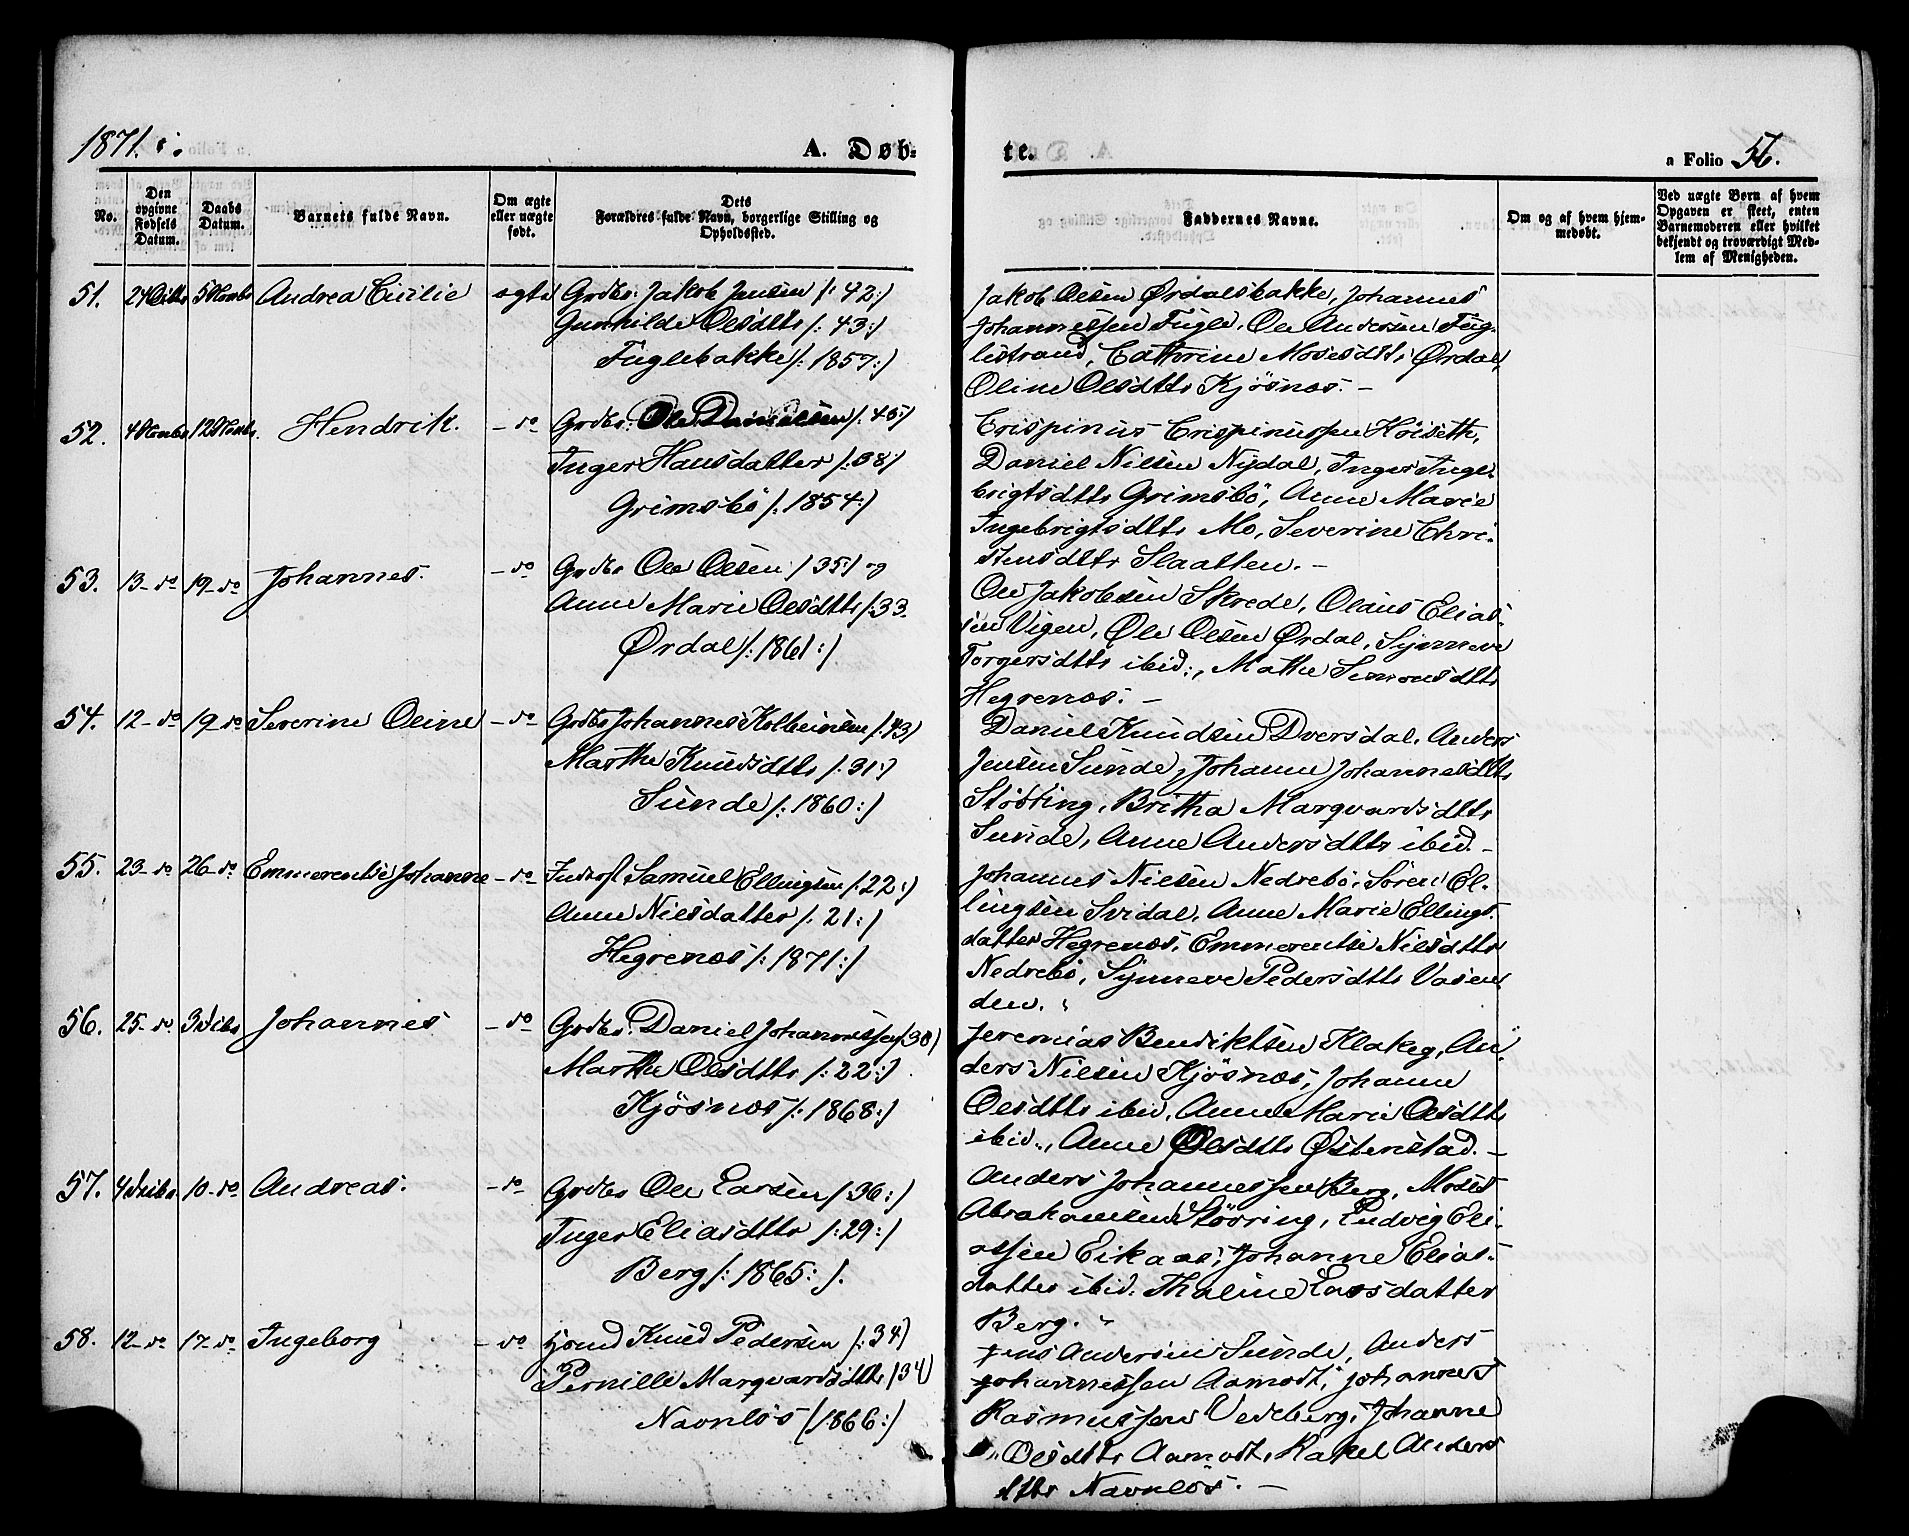 1871.
A. Døb-
te.
a Folio 56.
No.
Den opgivne Fødsels Datum.
Daabs Datum.
Barnets fulde Navn.
Om ægte eller uægte født.
Dets Forældres fulde Navn, borgerlige Stilling og Opholdssted.
Faddernes Navne.
Om og af hvem hjemmedøbt.
Ved uægte Børn af hvem Opgaven er skeet, enten Barnemoderen eller hvilket bekjendt og troværdigt Medlem af Menigheden.
51. 24 Octbr 5 Novbr Andrea Cicilie ægte Grdbr. Jakob Jensen /: 42:/
Gunhilde Olsdttr /: 43:/
Fuglebakke /: 1857:/
Jakob Olsen Ørdalsbakke, Johannes
Johannessen Fugle, Ole Andersen Fug-
lestrand, Cathrine Mosesdttr Ørdal,
Oline Olsdttr Kjösnæs. -
52. 4 Novbr 12 Novbr. Hendrik. - do Grdbr. Ole Danielsen /: 40:/
Inger Hansdatter /: 38/
Grimsbö /: 1854:/
Crispinus Crispinussen Höiseth,
Daniel Nilsen Nydal, Inger Inge-
brigtsdttr Grimsbö, Anne Marie
Ingebrigtsdttr Mo, Severine Chri-
stensdttr Slaatten. -
53. 13 - do 19 - do Johannes. - do Grdbr Ole Olsen / 35/ og
Anne Marie Olsdttr /: 33.
Ørdal /: 1861:/
Ole Jakobsen Skrede, Olaus Elias-
sen Vigen, Ole Olsen Ørdal, Synneve
Torgersdttr ibid:, Mathe Simonsdttr
Hegrenæs. -
54. 12 - do 19 - do Severine Oline - do Grdbr Johannes Kolbeinsen /: 43/
Marthe Knudsdttr /: 31:/
Sunde /: 1860:/
Daniel Knudsen Dversdal, Anders
Jensen Sunde, Johanne Johannesdttr
Stövring, Britha Marqvardsdttr
Sunde, Anne Andersdttr ibid. -
55. 23 - do 26 - do Emmerentse Johanne - do Inderst Samuel Ellingsen /: 22:/
Anne Nilsdatter /: 21:/
Hegrenæs /: 1871:/
Johannes Nilsen Nedrebö, Sören El-
lingsen Svidal, Anne Marie Ellings-
datter Hegrenæs, Emmerentse Nilsdttr
Nedrebö, Synneve Pedersdttr Vasen-
den.
56. 25 - do 3 Dcbr Johannes - do Grdbr. Daniel Johannessen /: 30/
Marthe Olsdttr /: 22:/
Kjösnæs /: 1868:/
Jeremias Bendiktsen Klakeg, An-
ders Nilsen Kjösnæs, Johanne
Olsdttr ibid, Anne Marie Olsdttr
ibid., Anne Olsdttr Østenstad. -
57. 4 Dcbr. 10 - do Andreas. - do Grdbr Ole Larsen /: 36:/
Inger Eliasdttr /: 29:/
Berg /: 1865:/.
Anders Johannessen Berg, Moses
Abrahamsen Stövring, Ludvig Eli-
assen Eikaas, Johanne Elias-
datter ibid. Thaline Larsdatter
Berg.
58. 12 - do 17 - do Ingeborg - do Hsmd Knud Pedersen /: 34/
Pernille Marqvardsdttr /34/
Navnlös /: 1866:/
Jens Andersen Sunde, Anders
Johannessen Aamodt, Johannes
Rasmussen Vedeberg, Johanne
Olsdttr Aamodt, Rakel Anders
dttr Navnlös. -